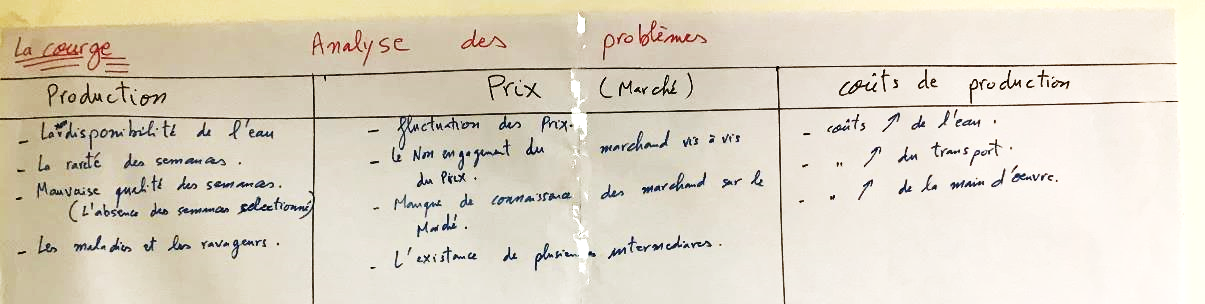 La courge
Analyse des problèmes
Production
- La disponibilité de l'eau
- La rareté des semances.
- Mauvaise qualité des semances.
(L'absence des semances selectionné)
- Les maladies et les ravageurs.
Prix (Marché)
- fluctuation des Prix.
- Le Non engagement du marchand vis à vis
du Prix.
- Manque de connaissance des marchand sur le
Marché.
- L'existance de plusieurs intermediares.
coûts de production
- coûts ↑ de l'eau.
- " ↑ du transport.
- " ↑ de la main d'oeuvre.